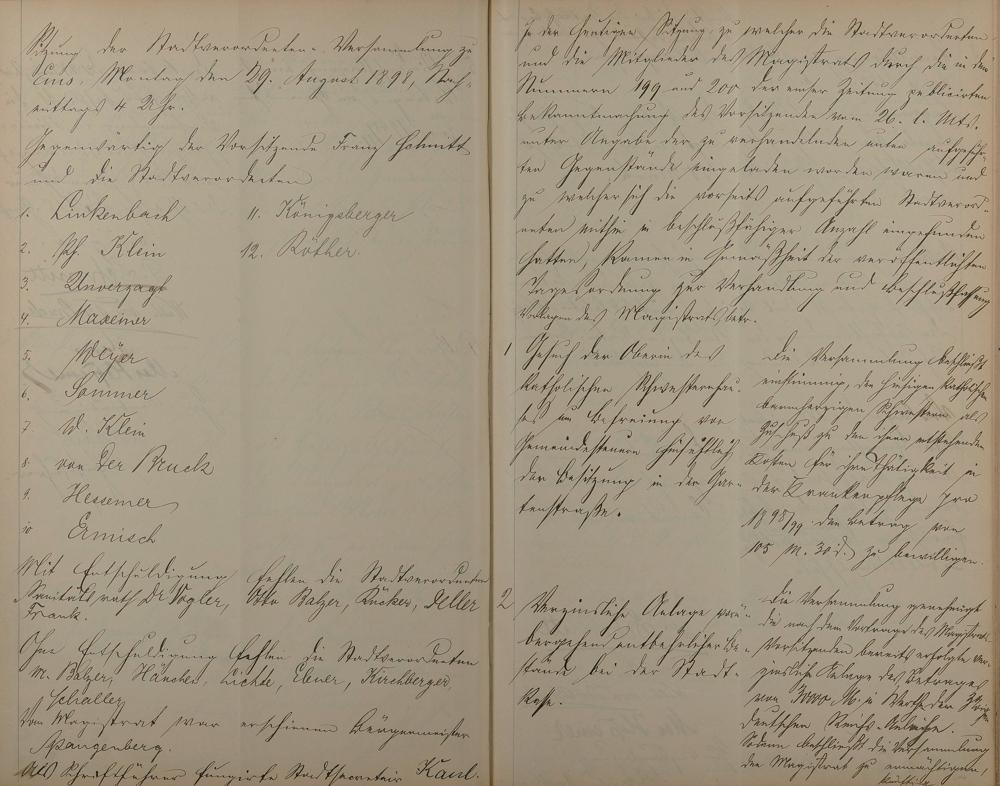 Sitzung der Stadtverordneten-Versammlung zu
Ems, Montag den 29. August 1898, Nach-
mittags 4 Uhr.
Gegenwärtig der Vorsitzende Franz Schmitt
und die Stadtverordneten
1. Linkenbach
2. Ph. Klein
3. Unverzagt
4. Maxeiner
5. Meyer
6. Sommer
7. W. Klein
8. von der Bruck
9. Hessemer
10 Ermisch
11. Königsberger
12. Röther
Mit Entschuldigung fehlen die Stadtverordneten
Sanitätsrath Dr Vogler, Otto Balzer, Rücker, Deller
Frank.
Ohne Entschuldigung fehlen die Stadtverordneten
M. Balzer, Hänchen, Lichte, Ebner, Kirchberger,
Schaller
Vom Magistrat war erschienen Bürgermeister
Spangenberg.
Als Schriftführer fungirte Stadtsecretair Kaul.
In der heutigen Sitzung, zu welcher die Stadtverordneten
und die Mitglieder des Magistrats durch die in den
Nummern 199 und 200 der Emser Zeitung publicirten
Bekanntmachung des Vorsitzenden vom 26. l. Mts.
unter Angabe der zu verhandelnden unten aufgeführ-
ten Gegenstände eingeladen worden waren und
zu welcher sich die vorseits aufgeführten Stadtverord-
neten mithin in beschlußfähiger Anzahl eingefunden
hatten, kamen in Gemäßheit der veröffentlichten
Tagesordnung zur Verhandlung und Beschlußfassung
Vorlagen des Magistrats betr.
1 Gesuch der Oberin des
katholischen Schwesternhau-
ses um Befreiung von
Gemeindesteuern hinsichtlich
der Besitzung in der Gar-
tenstraße.
Die Versammlung beschließt
einstimmig, den hiesigen katholischen
barmherzigen Schwestern als
Zuschuß zu den ihnen entstehenden
Kosten für ihre Thätigkeit in
der Krankenpflege pro
1898/99 den Betrag von
105 M. 30 d. zu bewilligen.
2 Verzinsliche Anlage vorü-
bergehend entbehrlicher Be-
stände bei der Stadt-
kasse.
Die Versammlung genehmigt
die nach dem Vortrage des Magistrats-
Vorsitzenden bereits erfolgte ver-
zinsliche Anlage des Betrages
von 30000 M. in Werthe der
Deutschen Reichs-Anleihe.
Sodann beschließt die Versammlung
den Magistrat zu ermächtigen,
künftig